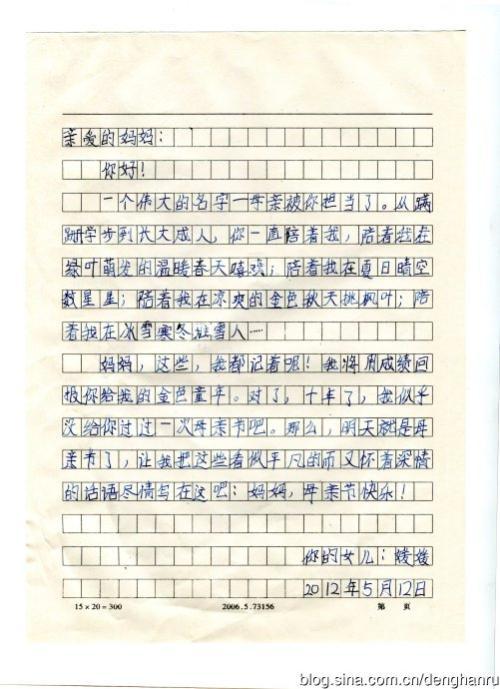 亲爱的妈妈：
你好！
一个伟大的名字一母亲被你担当了。从蹒
跚学步到长大成人，你一直陪着我，陪着我在
绿叶萌发的温暖春天嘻欢；陪着我在夏日晴空
数星星；陪着我在凉爽的金色秋天挑枫叶；陪
着我在冰雪寒冬堆雪人…
妈妈，这些，我都记着呢！我将用成绩回
报你给我的金色童年。对了，十年了，我似乎
没给你过过一次母亲节吧。那么，明天就是母
亲节了，让我把这些看似平凡的而又怀着深情
的话语尽情写在这吧：妈妈，母亲节快乐！
你的女儿：媛媛
2012年5月12日
15×20=300 2006.5.73156 第 页
blog.sina.com.cn/denghanru